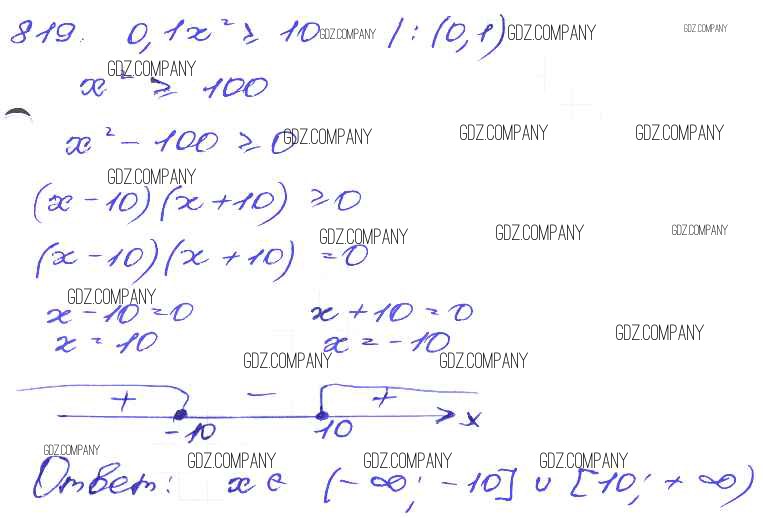 819. 0,1x² ≥ 10 GDZ.COMPANY / : (0,1) GDZ.COMPANY GDZ.COMPANY
GDZ.COMPANY
x² ≥ 100
x² - 100 ≥ 0 GDZ.COMPANY GDZ.COMPANY GDZ.COMPANY
GDZ.COMPANY
(x - 10)(x + 10) ≥ 0
GDZ.COMPANY GDZ.COMPANY GDZ.COMPANY
(x - 10)(x + 10) = 0
GDZ.COMPANY
x - 10 = 0 x + 10 = 0
GDZ.COMPANY
x = 10 x = -10
GDZ.COMPANY GDZ.COMPANY
+ - +
-10 10 x
GDZ.COMPANY GDZ.COMPANY GDZ.COMPANY GDZ.COMPANY
Ответ: x ∈ (-∞; -10] ∪ [10; +∞)